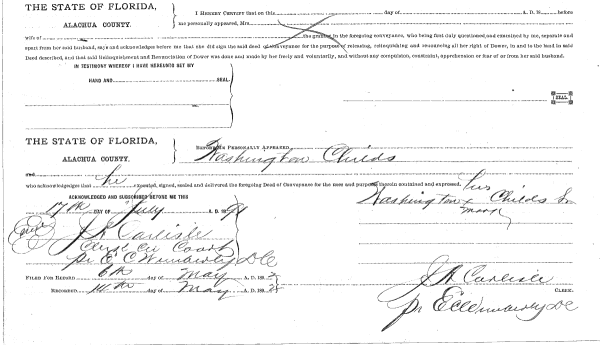 THE STATE OF FLORIDA,
ALACHUA COUNTY.
I HEREBY CERTIFY that on this day of A. D. 18 before
me personally appeared, Mrs.
wife of the grantor in the foregoing conveyance, who being first duly questioned and examined by me, separate and
apart from her said husband, says and acknowledges before me that she did sign the said deed of conveyance for the purpose of releasing, relinquishing and renouncing all her right of Dower, in and to the land in said
Deed described, and that said Relinquishment and Renunciation of Dower was done and made by her freely and voluntarily, and without any compulsion, constraint, apprehension or fear of or from her said husband.
IN TESTIMONY WHEREOF I HAVE HEREUNTO SET MY
HAND AND SEAL
SEAL
THE STATE OF FLORIDA,
ALACHUA COUNTY.
PERSONALLY APPEARED
Washington Childs
and
who acknowledges that he executed, signed, sealed and delivered the foregoing Deed of Conveyance for the uses and purposes therein contained and expressed.
his
Washington x Childs Sr
mark
ACKNOWLEDGED AND SUBSCRIBED BEFORE ME THIS
17th DAY OF July A. D. 18
J A Carlisle
Clerk Cir Court
pr E C Wimberly DC
FILED FOR RECORD 6th day of May A. D. 189
RECORDED 14th day of May A. D. 189
J A Carlisle
CLERK.
pr E C Wimberly DC